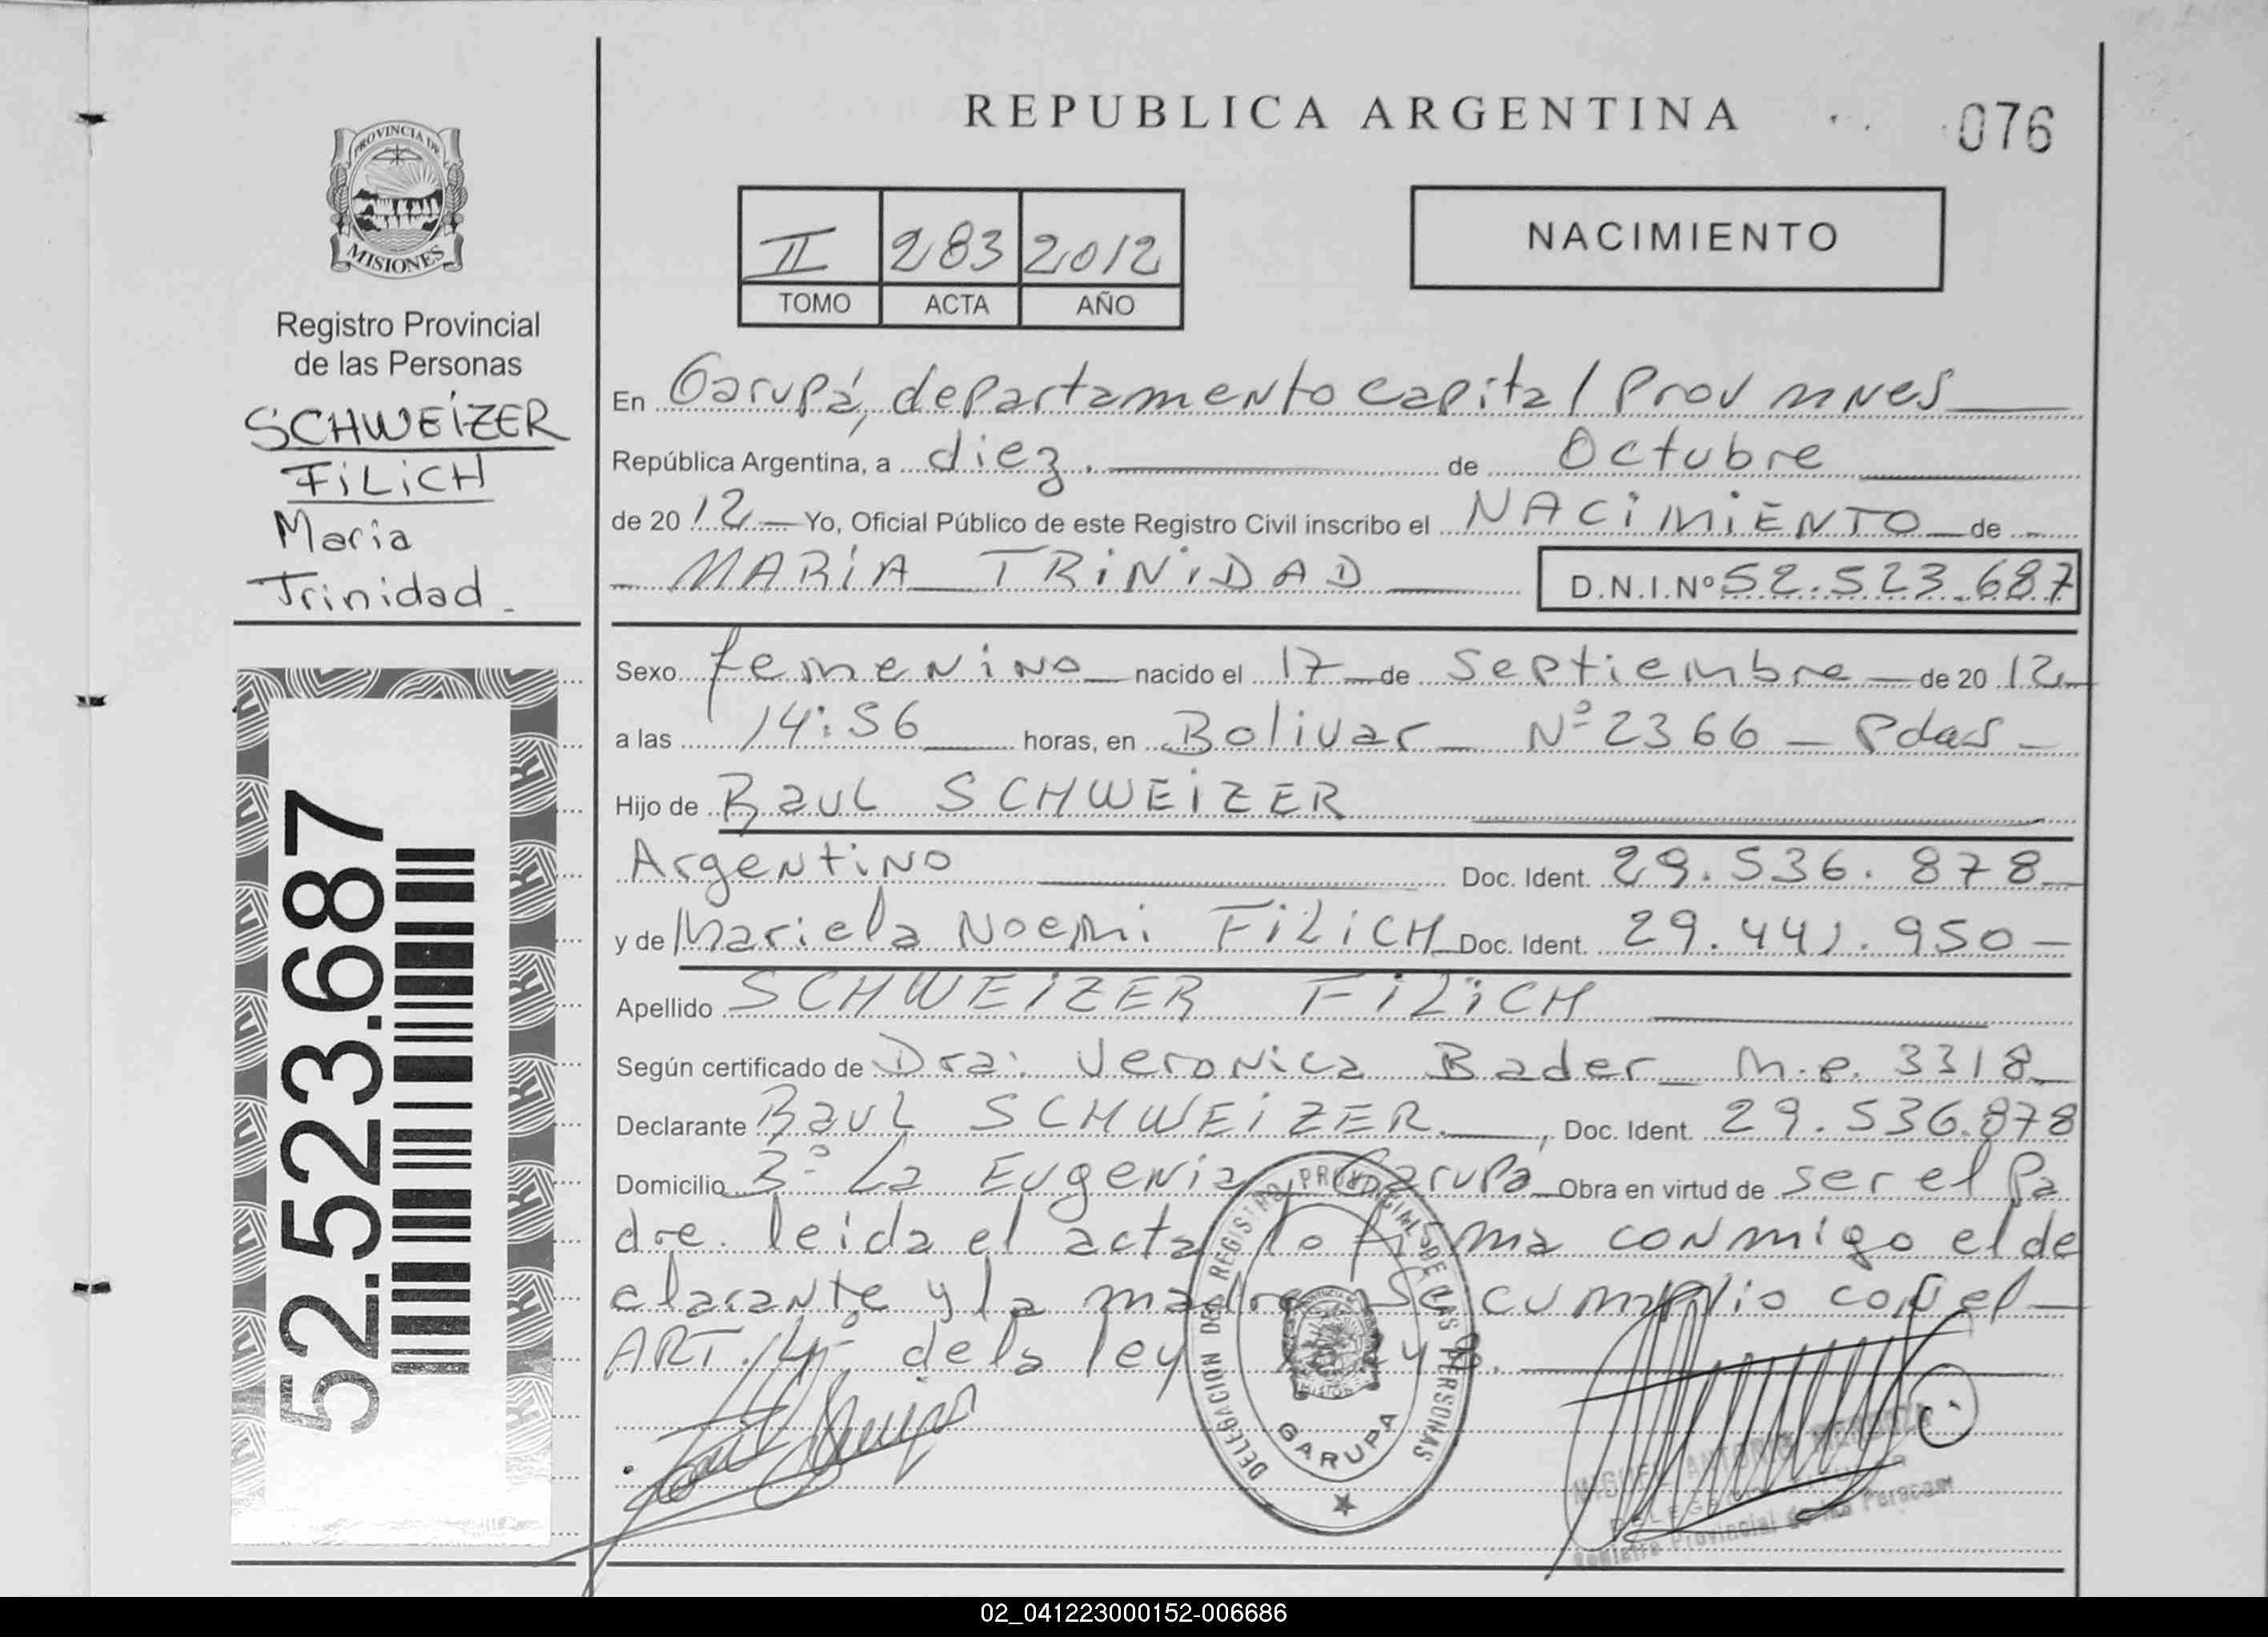 REPUBLICA ARGENTINA
076
PROVINCIA DE
MISIONES
Registro Provincial
de las Personas
SCHWEIZER
FILICH
Maria
Trinidad.
52.523.687
II 283 2012
TOMO ACTA AÑO
NACIMIENTO
En Garupá, departamento capital Prov mnes
República Argentina, a diez. de Octubre
de 2012 Yo, Oficial Público de este Registro Civil inscribo el NACIMIENTO de
MARIA TRINIDAD D.N.I.Nº 52.523.687
Sexo femenino nacido el 17 de Septiembre de 2012
a las 14:56 horas, en Bolivar Nº 2366 - Pdas -
Hijo de Raul SCHWEIZER
Argentino Doc. Ident. 29.536.878
y de Mariela Noemi FILICH Doc. Ident. 29.441.950
Apellido SCHWEIZER FILICH
Según certificado de Dra: Veronica Bader M.P. 3318
Declarante Raul SCHWEIZER, Doc. Ident. 29.536.878
Domicilio Bº La Eugenia, Garupá Obra en virtud de ser el Pa
dre. leida el acta lo firma conmigo el de
clarante y la madre Se cumplio con el
ART. 14 de la ley
DELEGACION DEL REGISTRO PROVINCIAL DE LAS PERSONAS
GARUPA
MIGUEL ANTONIO
Registro Provincial de las Personas
02_041223000152-006686